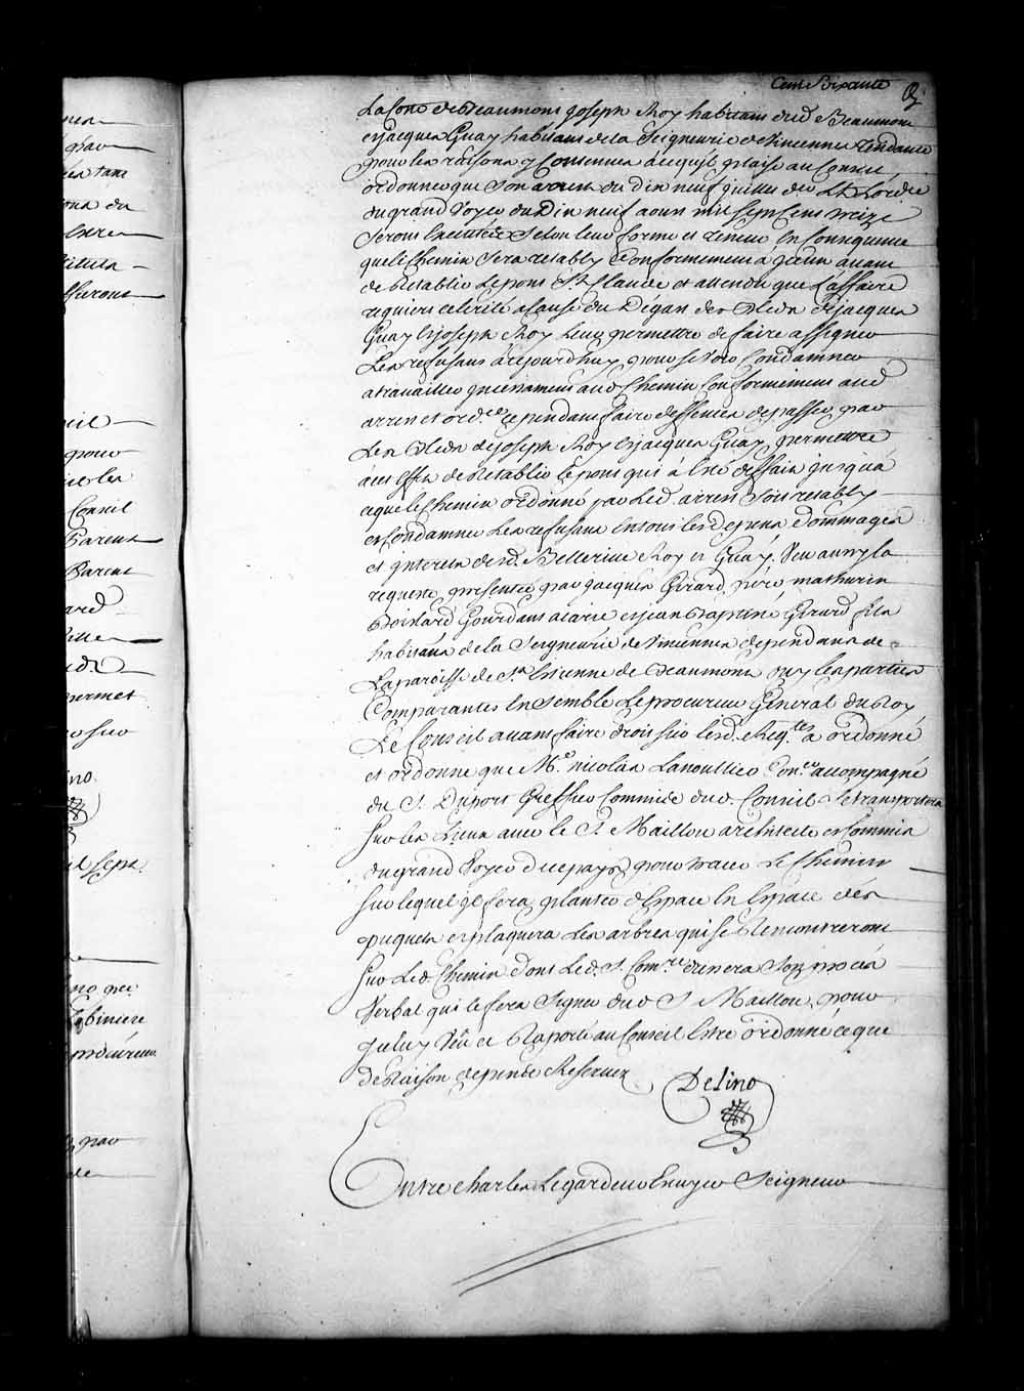 Cent Soixante
La Coste de Beaumont joseph Roy habitant dud. Beaumont
et jacques Guay habitant de la Seigneurie de Vincennes tendante
pour les raisons y Contenues a ce qu'il plaise au Conseil
ordonner que Son arrest du dix neuf juillet der et Lordre
du grand Voyer du Dix neuf aoust mil Sept Cens treize
Seront Executées Selon leur forme et teneur En Consequence
que le Chemin Sera retably Conformement a jceux avant
de Retablir le pont St Claude et attendu que l'affaire
requiert celerité a Cause du Dégast des bleds de jacques
Guay et joseph Roy Leur permettre de faire assigner
Les refusans a cejourdhuy pour se Voir Condamner
a travailler incessament aud Chemin Conformement aud
arrest et ord.ce cependant faire deffences de passer par
Les bleds de joseph Roy et jacques Guay, permettre
a cet effet de Retablir le pont qui a Eté deffait jusqu'à
ce que le Chemin ordonné par Led. arrest Soit retably
et Condamner Les refusans En tous les depens dommages
et jnterests desd. Bellerive Roy et Guay, Veu aussy la
requeste presentée par jacques Girard pere, mathurin
habitans de la Seigneurie de Vincennes dependans de
La paroisse de St Etienne de Beaumont, ouy les parties
Comparantes Ensemble Le procureur General du Roy
Le Conseil avant faire droit sur lesd. Req.tes a ordonné
et ordonne que M.e nicolas Lanoullier Con.er accompagné
du S. Duport Greffier Commis dud. Conseil Se transportera
Sur les Lieux avec le S. Maillou architecte et Commis
du grand Voyer de ce pays pour tracer Le Chemin
Sur lequel jl fera planter d'Espace En Espace des
piquets et plaquera Les arbres qui se Rencontreront
Sur Led. Chemin dont Led. S. Com.re dressera Son procés
Verbal qui le fera Signer dud S. Maillou, pour
jceluy Vû et Raporté au Conseil Estre ordonné ce que
de Raison depens Reservez
Delino
Entre charles Legardeur Ecuyer Seigneur